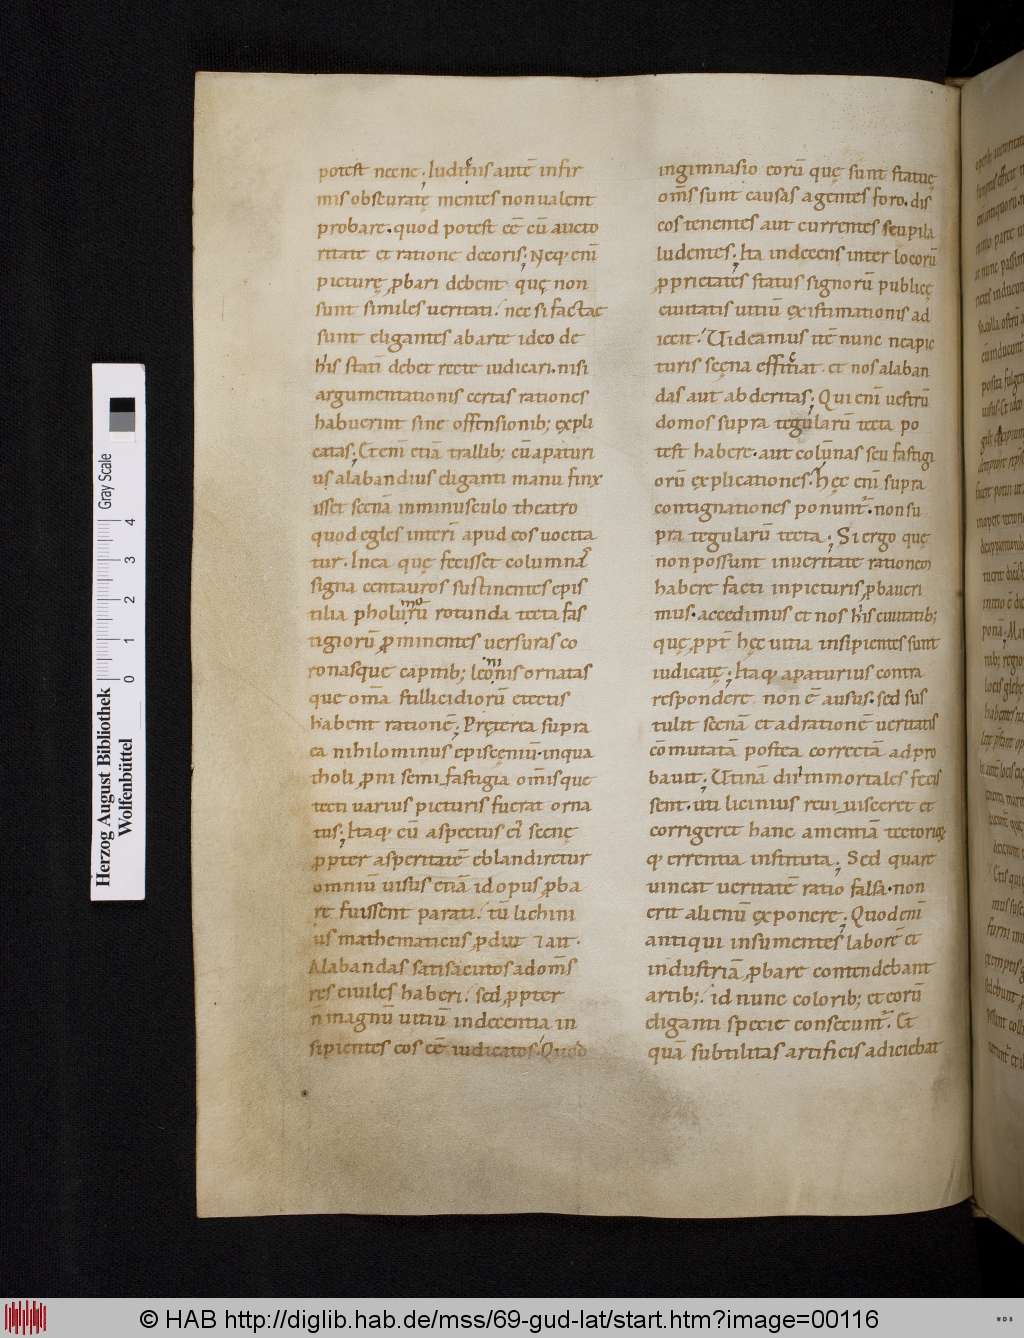 potest necne; Iudiciis autē infir
mis obscuratę mentes non ualent
probare. quod potest eē cū aucto
ritate et ratione decoris; Neq; enī
picturę ꝓbari debent quę non
sunt similes ueritati. nec si factae
sunt eligantes ab arte ideo de
his statī debet recte iudicari. nisi
argumentationis certas rationes
habuerint sine offensionib; expli
catas; Etenī etiā trallib; cū apaturi
us alabandius eliganti manu finx
isset scenā in minusculo theatro
quod egles interī apud eos uocita
tur. In ea quę fecisset columnas
signa centauros sustinentes epis
tilia pholurū rotunda tecta fas
tigiorū ꝓminentes uersuras co
ronasque capitib; leonis ornatas
que omā stillicidiorū e tectis
habent rationē; Pręterea supra
ea nihilominus episcęniū. in qua
tholi ꝓni semi fastigia om̄isque
tecti uarius picturis fuerat orna
tus; Itaq; cū aspectus ei scenę
ꝓpter asperitatē eblandiretur
omniū uisus etiā id opus ꝓba
re fuissent parati. tū lichini
us mathematicus ꝓdiit ⁊ ait.
Alabandas satis acutos ad om̄s
res ciuiles haberi. sed ꝓpter
n magnū uitiū indecentia in
sipientes eos eē iudicatos. Quod
in gimnasio eorū quę sunt statuę
om̄s sunt causas agentes foro. dis
cos tenentes aut currentes seu pila
ludentes; Ita indecens inter locorū
ꝓprietates status signorū publicę
ciuitatis uitiū exist imationis ad
iecit. Uideamus itē nunc ne apic
turis scęna efficiat et nos alaban
das aut abderitas; Qui enī uestrū
domos supra tegularū tecta po
test habere. aut columnas seu fastigi
orū explicationes. Hęc enī supra
contignationes ponunt̄. non su
pra tegularū tecta; Si ergo quę
non possunt in ueritate rationes
habere facti in picturis ꝓbaueri
mus. accedimus et nos his ciuitatib;
quę ꝓpt̄ hęc uitia insipientes sunt
iudicatę; Itaq; apaturius contra
respondere non ē ausus. sed sus
tulit scenā et ad rationē ueritatis
cōmutatā postea correctā adpro
bauit; Utinā dii immortales fecis
sent. uti licinius reuiuisceret et
corrigeret hanc amentiā tectoriq;
q; errentia instituta; Sed quare
uincat ueritatē ratio falsa. non
erit alienū exponere; Quod enī
antiqui insumentes laborē et
industriā ꝓbare contendebant
artib;. id nunc colorib; et eorū
eliganti specie consecunt̄. Et
quā subtilitas artificis adiciebat
Herzog August Bibliothek
Wolfenbüttel
Gray Scale
0 1 2 3 4
© HAB http://diglib.hab.de/mss/69-gud-lat/start.htm?image=00116